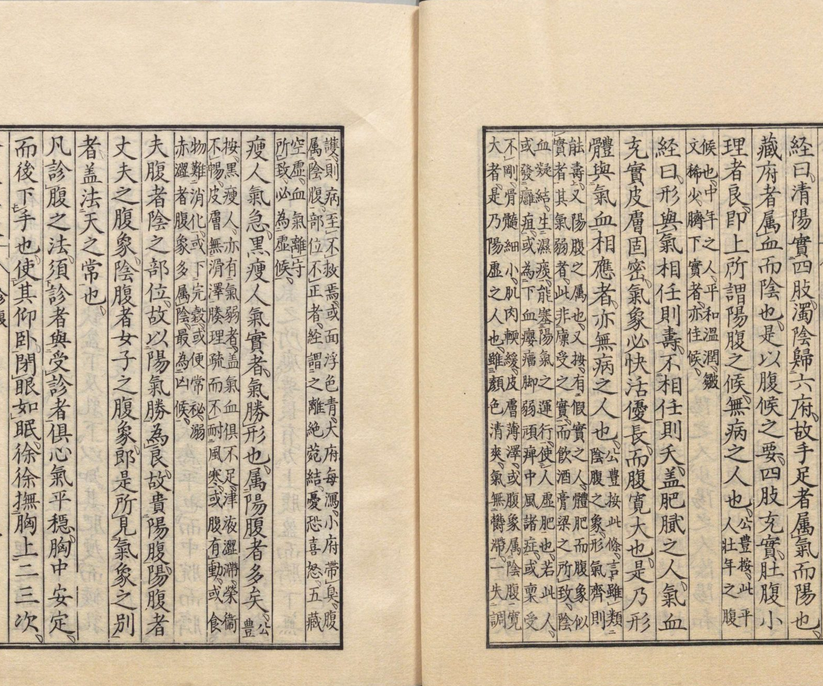 經曰清陽實四肢濁陰歸六府故手足者属氣而陽也
藏府者属血而陰也是以腹候之要四肢充實肚腹小
理者良即上所謂陽腹之候無病之人也公豊按此平人壯年之腹
候也中年之人平和温潤皺
文稀少臍下實者亦佳候
經曰形與氣相任則壽不相任則夭蓋肥膩之人氣血
充實皮膚固密氣象必快活優長而腹寛大也是乃形
體與氣血相應者亦無病之人也公豊按此條言雖類陰腹之象形氣齊則
能壽又陽腹之属也又按有假實之人體肥而腹象似
實者其氣弱者此非康受之實而飲酒膏梁之所致陰
血凝結生濕痰能塞陽氣之運行使人虛肥也若此人
或發癰疽或為下血瘻瘤脚弱頑痺中風諸症或稟受
不剛骨髓細小肌肉輭緩皮膚薄澤或腹象属陰腹寛
大者是乃陽虛之人也雖顏色清爽氣無欝滯一失調
護則病至不救焉或面浮色青大府每瀉小府帶臭腹
属陰腹部位不正者經謂之離絶菀結憂恐喜怒五藏
空虛血氣離守
所致必為虛候
瘦人氣急黒瘦人氣實者氣勝形也属陽腹者多矣公豊
按黒瘦人亦有氣弱者蓋氣血俱不足津液澀滯榮衞
不暢皮膚無滑澤腠理疏而不耐風寒或腹有動或食
物難消化或下完穀或便常秘溺
赤澀者腹象多属陰最為凶候
夫腹者陰之部位故以陽氣勝為良故貴陽腹陽腹者
丈夫之腹象陰腹者女子之腹象郎是所見氣象之别
者蓋法天之常也
凡診腹之法須診者與受診者俱心氣平穏胸中安定
而後下手也使其仰卧閉眼如眠徐徐撫胸上二三次